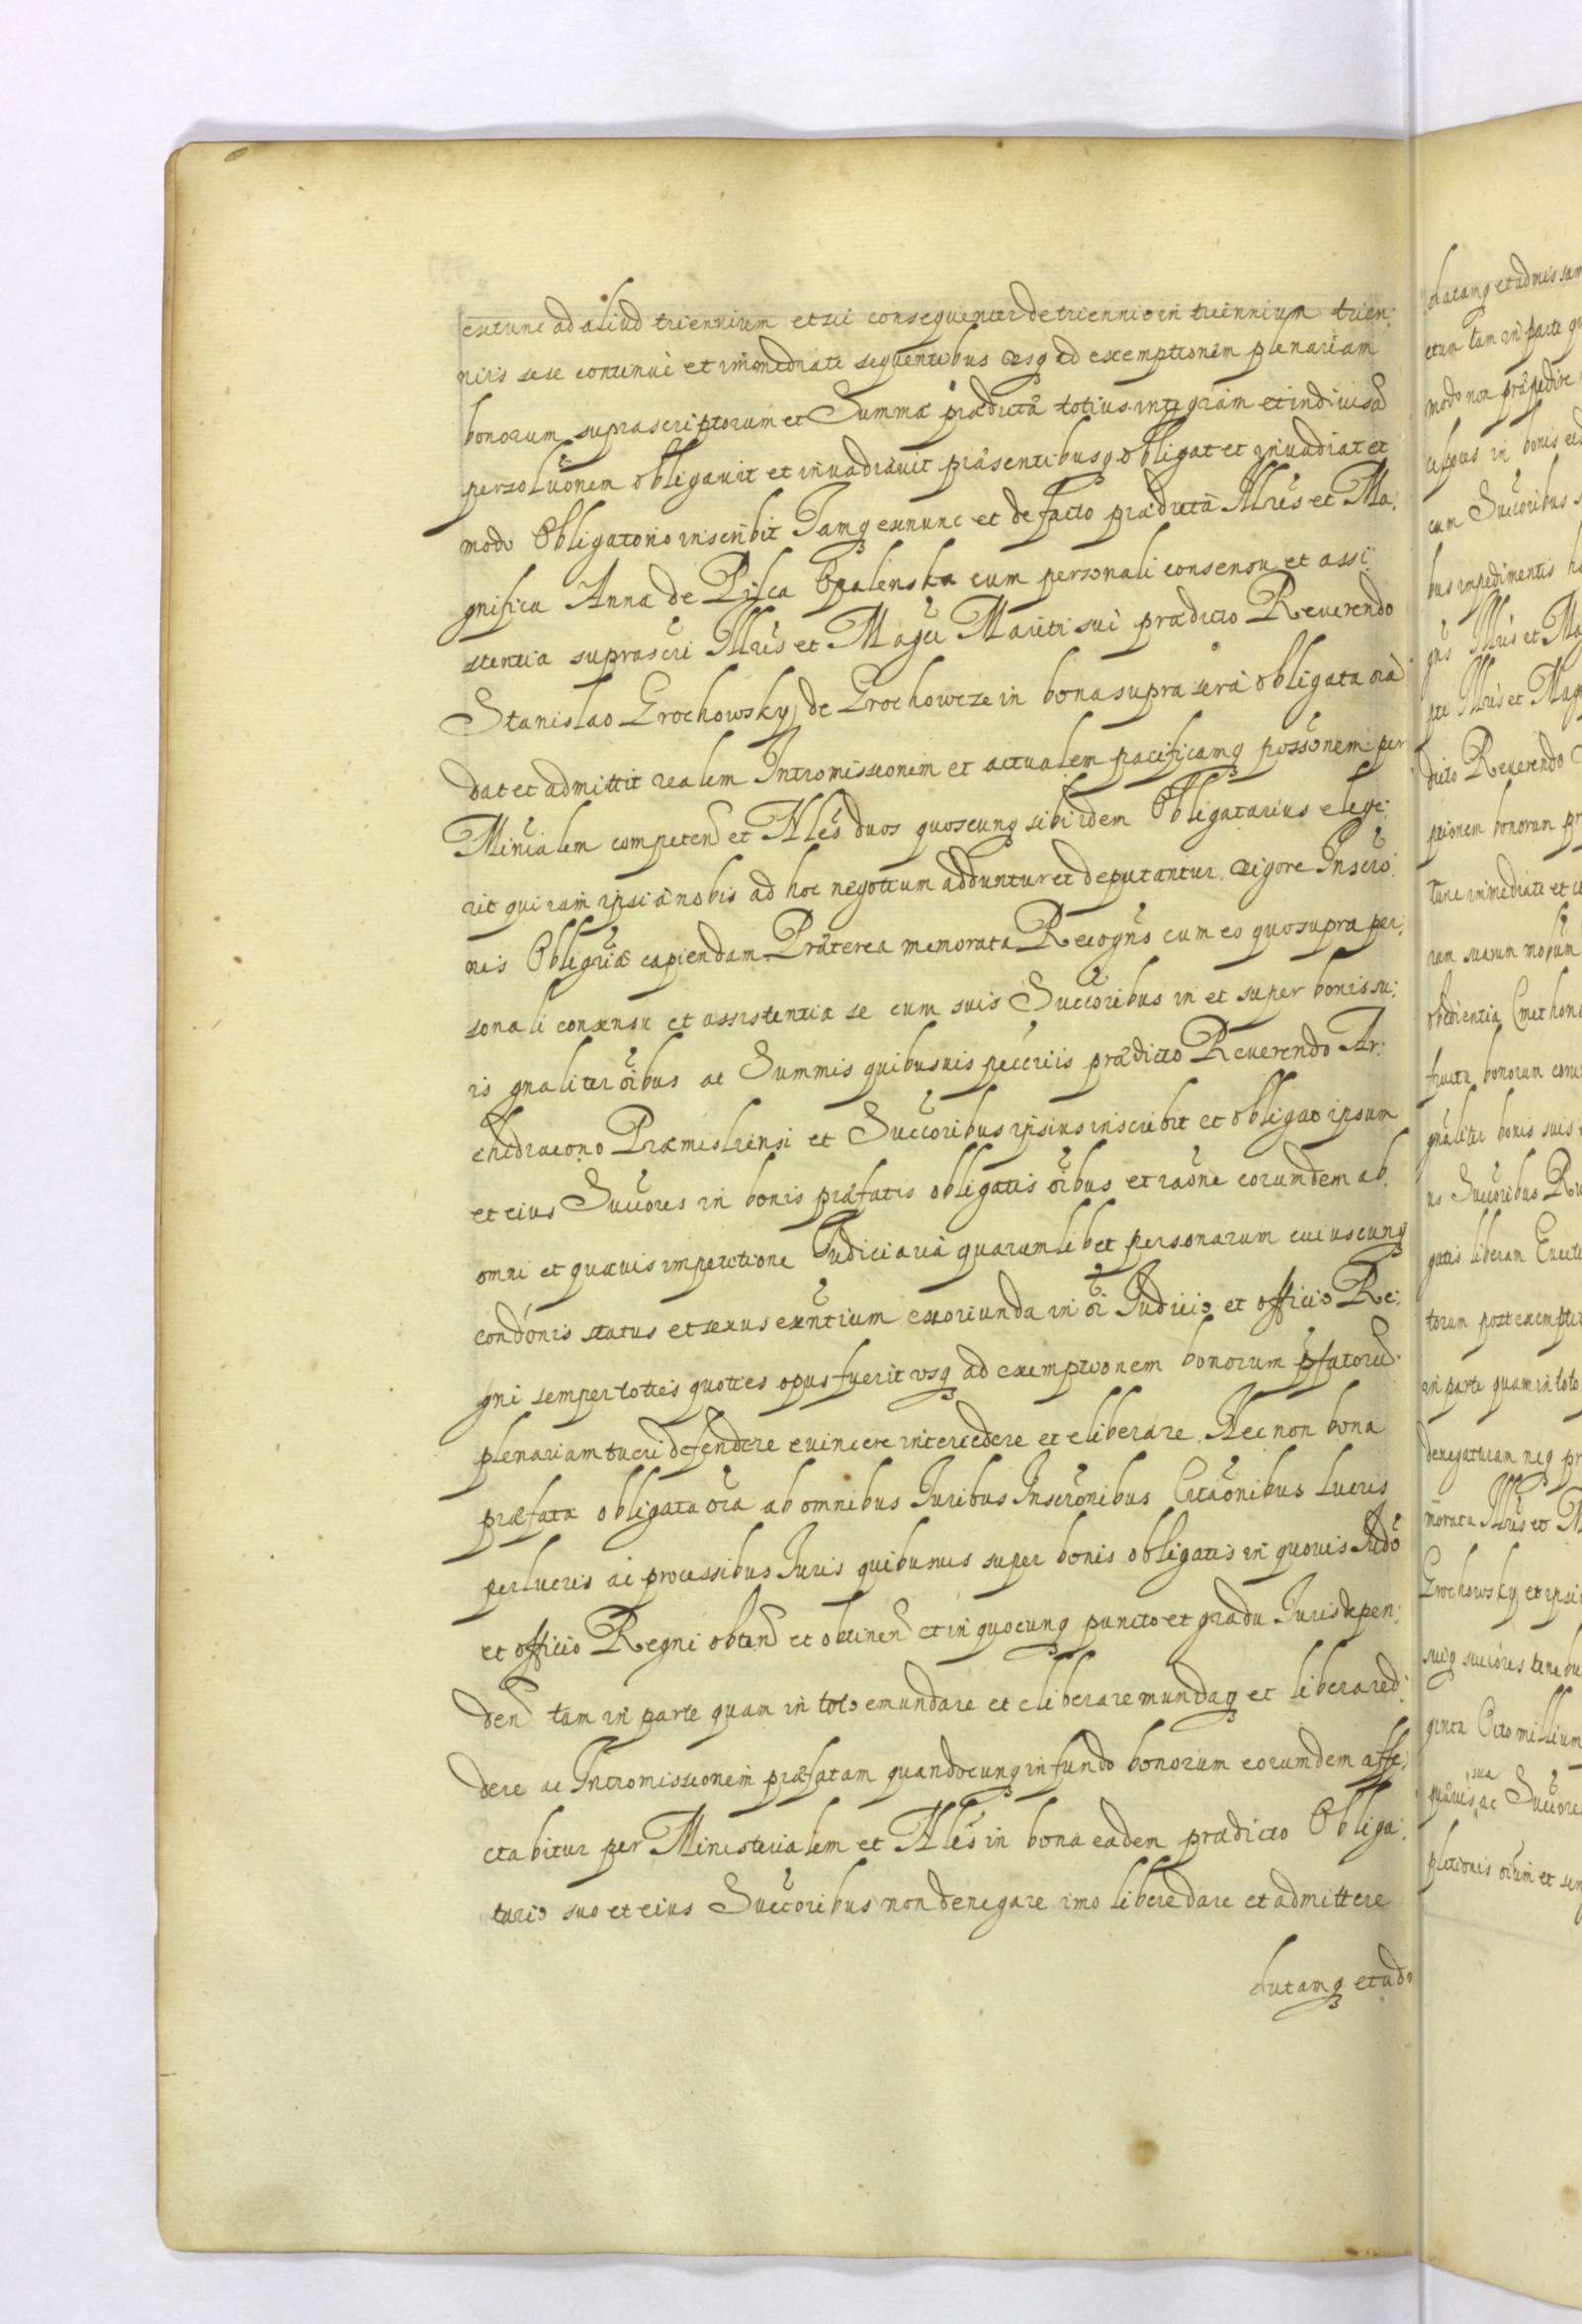 extunc ad aliud triennium et sic consequenter de triennio in triennium trien:
niis sese continuè et immediatè sequentibus usq ad exemptionem plenariam
bonorum suprascriptorum et Summæ prædictæ totius integram et indiuisã
persolu͠onem obligauit et inuadiauit præsentibusq obligat et inuadiat et
modo Obligatorio inscribit Iamq exnunc et de facto prædicta Illris et Ma:
gnifica Anna de Pilca Opalenska cum personali consensu et assi:
stentia suprascri Illris et Magci Mariti sui prædicto Reuerendo
Stanislao Grochowsky de Grochowcze in bona suprascra obligata oia
dat et admittit realem Intromissionem et actualem pacificamq possonem per
Mincialem competen et Nles duos quoscunq sibi idem Obligatarius elege:
rit qui iam ipsi à nobis ad hoc negotium adduntur et deputantur uigore Inscro:
nis Obligriæ capiendam. Præterea memorata Recogns cum eo quo supra per:
sonali consensu et assistentia se cum suis Succoribus in et super bonis su:
is gnaliter oibus ac Summis quibusuis pecuriis prædicto Reuerendo Ar:
chidiacono Præmisliensi et Succoribus ipsius inscribit et obligat ipsum
et eius Succores in bonis præfatis obligatis oibus et raone eorumdem ab
omni et quauis impetitione Iudiciaria quarumlibet personarum cuiuscunq
condonis status et sexus exntium exoriunda in oi Iudicio et officio Re:
gni semper toties quoties opus fuerit usq ad exemptionem bonorum pfatorũ
plenariam tueri defendere euincere intercedere et eliberare. Nec non bona
præfata obligata oia ab omnibus Iuribus Inscronibus Citaonibus lucris
perlucris ac processibus Iuris quibusuis super bonis obligatis in quouis Iudo
et officio Regni obten et obtinen et in quocunq puncto et gradu Iuris depen:
den tam in parte quam in toto emundare et eliberare mundaq et libera red:
dere ac Intromissionem præfatam quandocunq in fundo bonorum eorumdem affe:
ctabitur per Ministerialem et Nles in bona eadem prædicto Obliga:
tario suo et eius Succoribus non denegare imo libere dare et admittere
datamq et ad